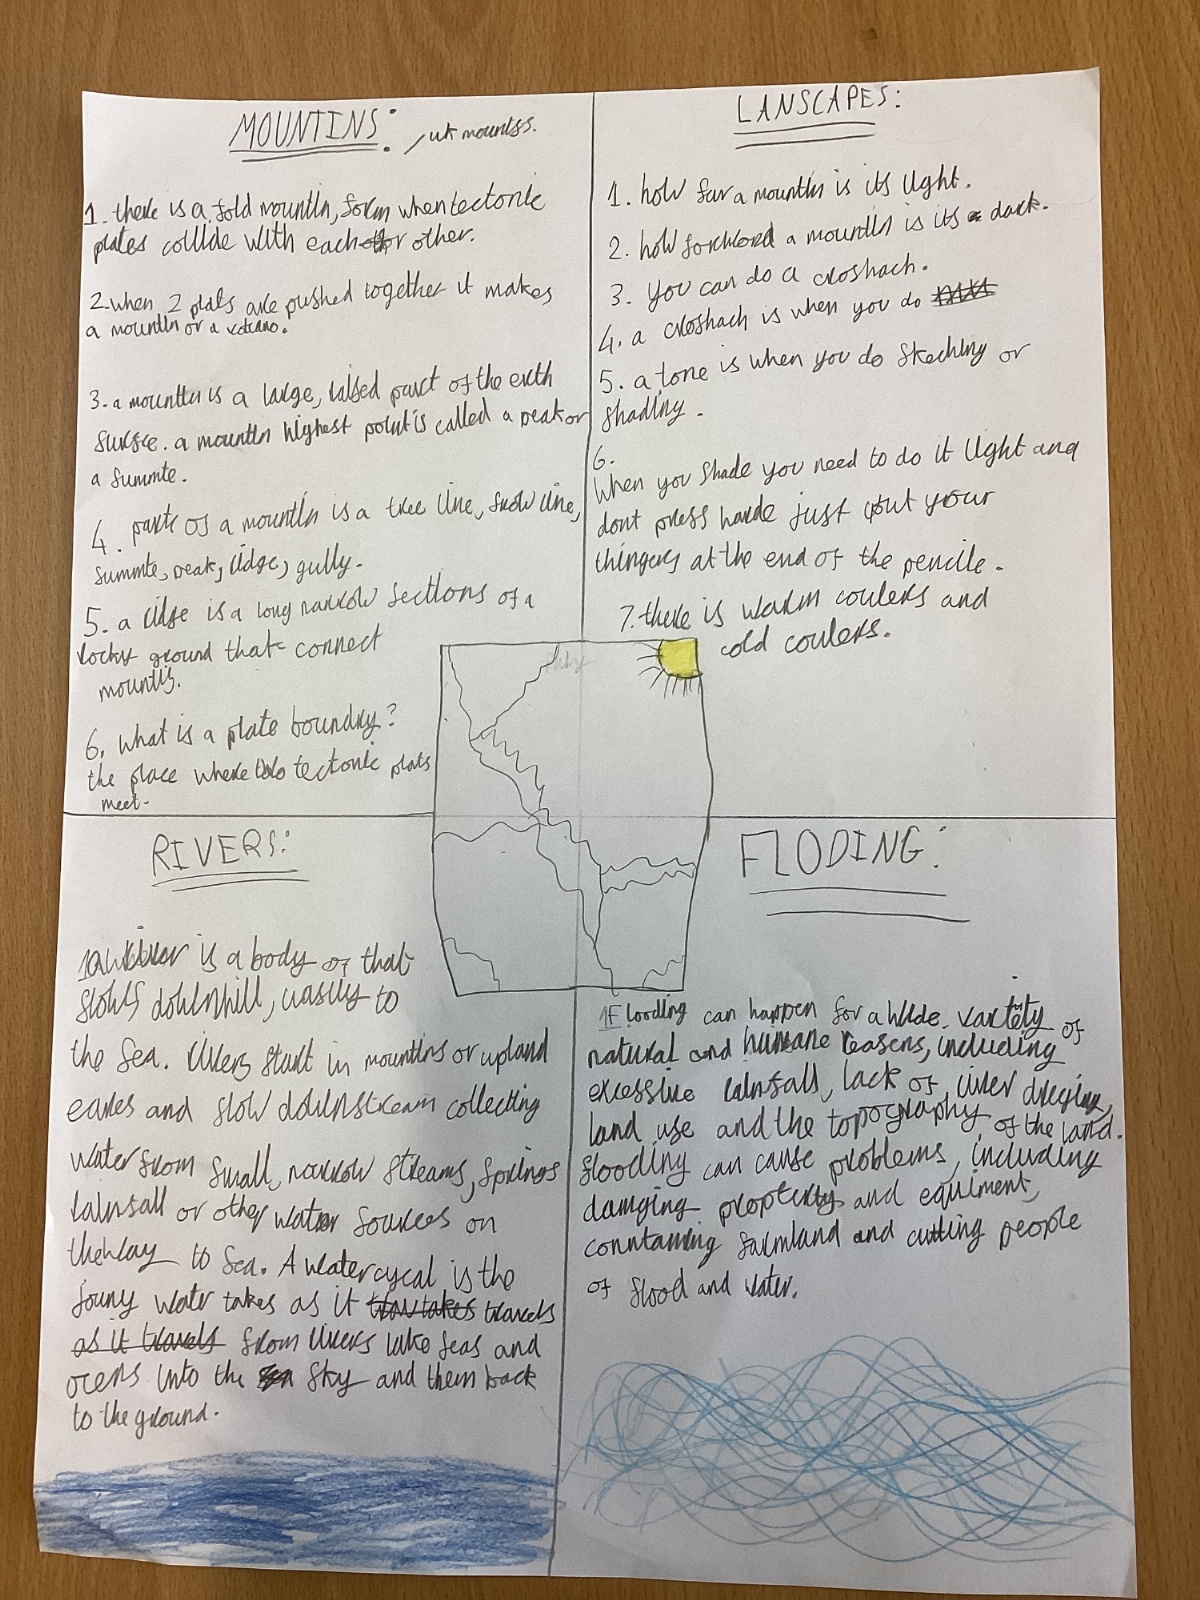 MOUNTINS:
LANSCAPES:
1. there is a fold mountin, form when tectonic
plates collide with each other.
2. when 2 plats are pushed together it makes
a mountin or a volcano.
3. a mountin is a large, raised part of the erth
surfce. a mountin highest point is called a peak or
a summte.
4. parts of a mountin is a tree line, snow line,
summte, peak, ridge, gully.
5. a ridge is a long narrow sections of a
rocky ground that connect
mountis.
6. What is a plate boundry?
the place where two tectonic plats
meet.
1. how far a mountin is its light.
2. how a mountin is its dark.
3. you can do a croshach.
4. a croshach is when you do
5. a tone is when you do skeching or
shading.
6.
When you shade you need to do it light and
dont press harde just put your
thingers at the end of the pencile.
7. there is warm coulers and
cold coulers.
RIVERS:
is a body of that
flows downhill, to
the sea. rivers start in mountins or upland
eares and flow downstream collecting
water from small, narrow streams, springs
rainfall or other water sources on
theway to sea. A watercycal is the
jouny water takes as it travels
from rivers lake seas and
ocens into the sky and them back
to the ground.
FLODING:
1Flooding can happen for a wide. variety of
natural and humane reasens, including
excessive rainfall, lack of river
land use and the topography of the land.
flooding can cause problems, including
damging and equiment,
farmland and cutting people
of flood and water.